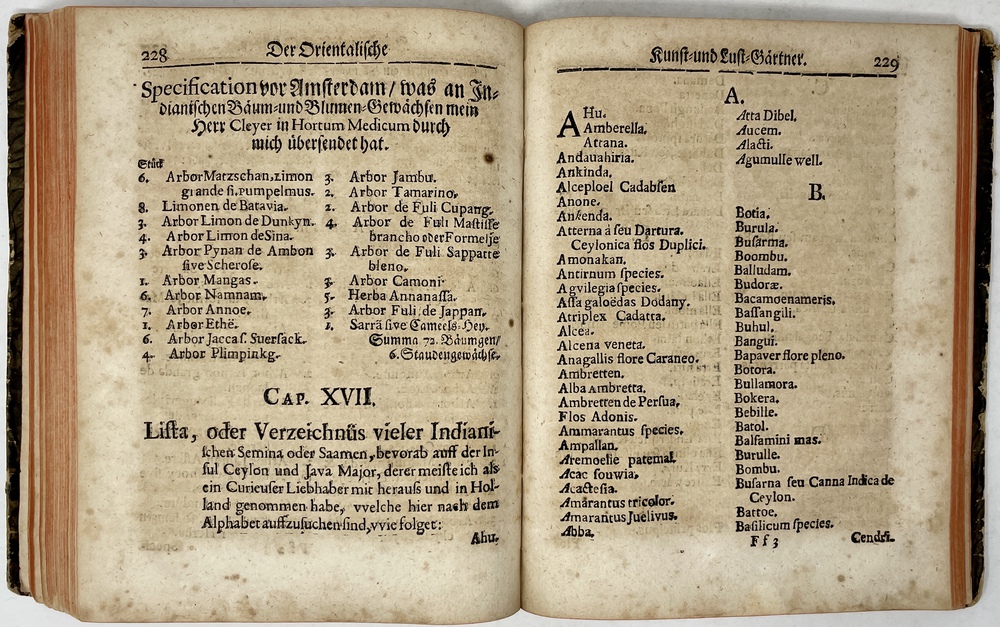 228 Der Orientalische
Specification vor Amsterdam / was an In-
dianischen Bäum-und Blumen-Gewächsen mein
Herr Cleyer in Hortum Medicum durch
mich übersendet hat.
Stück
6. Arbor Matzschan, Limon
grande si, Pumpelmus.
8. Limonen de Batavia.
3. Arbor Limon de Dunkyn.
4. Arbor Limon de Sina.
3. Arbor Pynan de Ambon
sive Scherose.
1. Arbor Mangas.
6. Arbor Namnam.
7. Arbor Annoe.
1. Arbor Ethë.
6. Arbor Jacca s. Suersack.
4. Arbor Plimpinkg.
3. Arbor Jambu.
2. Arbor Tamarino.
2. Arbor de Fuli Cupang.
4. Arbor de Fuli Mastisse
brancho oder Formelje
3. Arbor de Fuli Sappatte
bleno.
3. Arbor Camoni.
5. Herba Annanassa.
3. Arbor Fuli de Jappan.
1. Sarrä sive Cameels-Hey.
Summa 72. Bäumgen/
6. Staudengewächse.
CAP. XVII.
Lista, oder Verzeichnüs vieler Indiani-
schen Semina oder Saamen, bevorab auff der In-
sul Ceylon und Java Major, derer meiste ich als
ein Curieuser Liebhaber mit herauß und in Hol-
land genommen habe, vvelche hier nach dem
Alphabet auffzusuchen sind, vvie folget:
Ahu.
Kunst-und Lust-Gärtner. 229
A.
AHu.
Amberella.
Attana.
Andauahiria.
Ankinda.
Alceploel Cadabsen
Anone.
Ankenda.
Atterna à seu Dartura.
Ceylonica flos Duplici.
Amonakan.
Antirnum species.
Agvilegia species.
Assa galoëdas Dodany.
Atriplex Cadatta.
Alcea.
Alcena veneta.
Anagallis flore Caraneo.
Ambretten.
Alba Ambretta.
Ambretten de Persua.
Flos Adonis.
Ammarantus species.
Ampallan.
Aremoelie patemal.
Acac souwia.
Acactesia.
Amarantus tricolor.
Amarantus Juelivus.
Abba.
Atta Dibel.
Aucem.
Alacti.
Agumulle well.
B.
Botia.
Burula.
Busarma.
Boombu.
Balludam.
Budoræ.
Bacamoenameris.
Bassangili.
Buhul.
Bangui.
Bapaver flore pleno.
Botora.
Bullamora.
Bokera.
Bebille.
Batol.
Balsamini mas.
Burulle.
Bombu.
Busarna seu Canna Indica de
Ceylon.
Battoe.
Basilicum species.
Ff 3 Cendri.